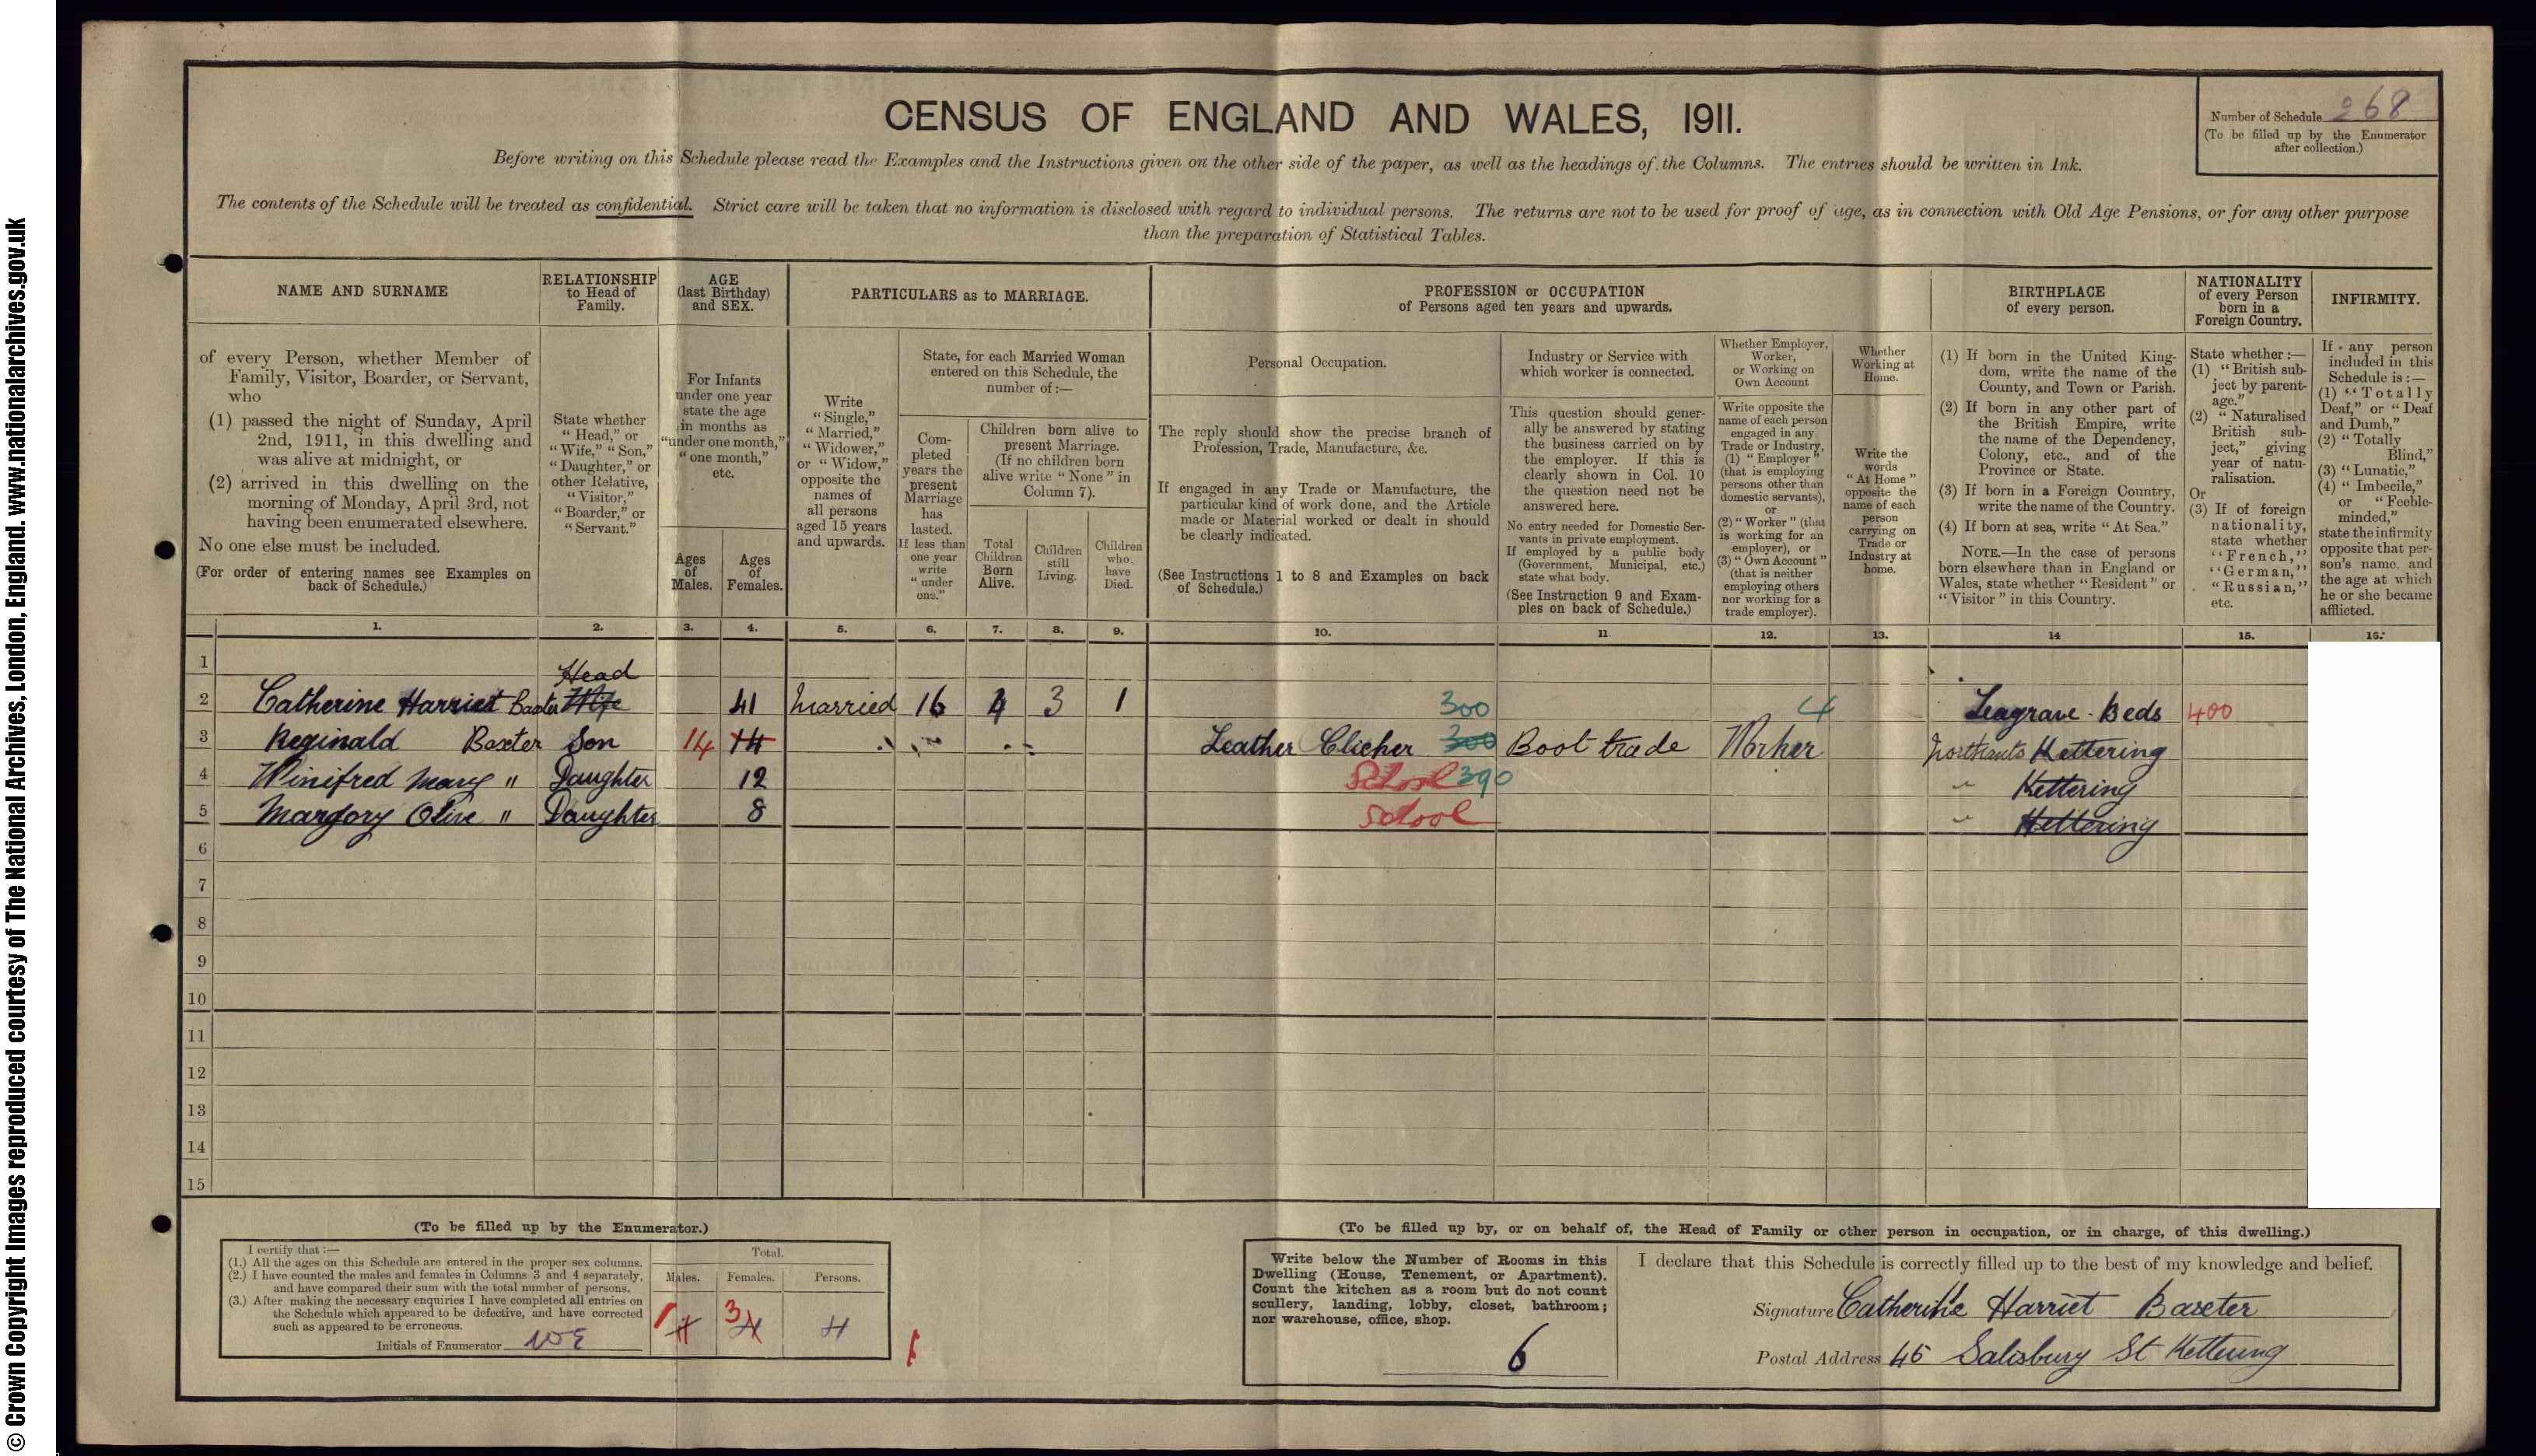 © Crown Copyright Images reproduced courtesy of The National Archives, London, England. www.nationalarchives.gov.uk
CENSUS OF ENGLAND AND WALES, 1911.
Number of Schedule 268
(To be filled up by the Enumerator
after collection.)
Before writing on this Schedule please read the Examples and the Instructions given on the other side of the paper, as well as the headings of the Columns. The entries should be written in Ink.
The contents of the Schedule will be treated as confidential. Strict care will be taken that no information is disclosed with regard to individual persons. The returns are not to be used for proof of age, as in connection with Old Age Pensions, or for any other purpose
than the preparation of Statistical Tables.
NAME AND SURNAME
of every Person, whether Member of
Family, Visitor, Boarder, or Servant,
who
(1) passed the night of Sunday, April
2nd, 1911, in this dwelling and
was alive at midnight, or
(2) arrived in this dwelling on the
morning of Monday, April 3rd, not
having been enumerated elsewhere.
No one else must be included.
(For order of entering names see Examples on
back of Schedule.)
RELATIONSHIP
to Head of
Family.
State whether
"Head," or
"Wife," "Son,"
"Daughter," or
other Relative,
"Visitor,"
"Boarder," or
"Servant."
AGE
(last Birthday)
and SEX.
For Infants
under one year
state the age
in months as
"under one month,"
"one month,"
etc.
Ages
of
Males.
Ages
of
Females.
PARTICULARS as to MARRIAGE.
Write
"Single,"
"Married,"
"Widower,"
or "Widow,"
opposite the
names of
all persons
aged 15 years
and upwards.
State, for each Married Woman
entered on this Schedule, the
number of:—
Com-
pleted
years the
present
Marriage
has
lasted.
If less than
one year
write
"under
one."
Children born alive to
present Marriage.
(If no children born
alive write "None" in
Column 7).
Total
Children
Born
Alive.
Children
still
Living.
Children
who
have
Died.
PROFESSION or OCCUPATION
of Persons aged ten years and upwards.
Personal Occupation.
The reply should show the precise branch of
Profession, Trade, Manufacture, &c.
If engaged in any Trade or Manufacture, the
particular kind of work done, and the Article
made or Material worked or dealt in should
be clearly indicated.
(See Instructions 1 to 8 and Examples on back
of Schedule.)
Industry or Service with
which worker is connected.
This question should gener-
ally be answered by stating
the business carried on by
the employer. If this is
clearly shown in Col. 10
the question need not be
answered here.
No entry needed for Domestic Ser-
vants in private employment.
If employed by a public body
(Government, Municipal, etc.)
state what body.
(See Instruction 9 and Exam-
ples on back of Schedule.)
Whether Employer,
Worker,
or Working on
Own Account
Write opposite the
name of each person
engaged in any
Trade or Industry,
(1) "Employer"
(that is employing
persons other than
domestic servants),
or
(2) "Worker" (that
is working for an
employer), or
(3) "Own Account"
(that is neither
employing others
nor working for a
trade employer).
Whether
Working at
Home.
Write the
words
"At Home"
opposite the
name of each
person
carrying on
Trade or
Industry at
home.
BIRTHPLACE
of every person.
(1) If born in the United King-
dom, write the name of the
County, and Town or Parish.
(2) If born in any other part of
the British Empire, write
the name of the Dependency,
Colony, etc., and of the
Province or State.
(3) If born in a Foreign Country,
write the name of the Country.
(4) If born at sea, write "At Sea."
NOTE.—In the case of persons
born elsewhere than in England or
Wales, state whether "Resident" or
"Visitor" in this Country.
NATIONALITY
of every Person
born in a
Foreign Country.
State whether:—
(1) "British sub-
ject by parent-
age."
(2) "Naturalised
British sub-
ject," giving
year of natu-
ralisation.
Or
(3) If of foreign
nationality,
state whether
"French,"
"German,"
"Russian,"
etc.
INFIRMITY.
If any person
included in this
Schedule is:—
(1) "Totally
Deaf," or "Deaf
and Dumb,"
(2) "Totally
Blind,"
(3) "Lunatic,"
(4) "Imbecile,"
or "Feeble-
minded,"
state the infirmity
opposite that per-
son's name, and
the age at which
he or she became
afflicted.
1. 2. 3. 4. 5. 6. 7. 8. 9. 10. 11 12. 13. 14 15. 16.
1
Head
2 Catherine Harriet Baxter Wife 41 Married 16 4 3 1 300 4 Leagrave Beds 400
3 Reginald Baxter Son 14 14 Leather Clicker 300 Boot trade Worker Northants Kettering
4 Winifred Mary " Daughter 12 School 390 " Kettering
5 Marjory Olive " Daughter 8 School " Kettering
6
7
8
9
10
11
12
13
14
15
(To be filled up by the Enumerator.)
I certify that:—
(1.) All the ages on this Schedule are entered in the proper sex columns.
(2.) I have counted the males and females in Columns 3 and 4 separately,
and have compared their sum with the total number of persons.
(3.) After making the necessary enquiries I have completed all entries on
the Schedule which appeared to be defective, and have corrected
such as appeared to be erroneous.
Initials of Enumerator WE
Total.
Males. Females. Persons.
1 3 4 4
(To be filled up by, or on behalf of, the Head of Family or other person in occupation, or in charge, of this dwelling.)
Write below the Number of Rooms in this
Dwelling (House, Tenement, or Apartment).
Count the kitchen as a room but do not count
scullery, landing, lobby, closet, bathroom;
nor warehouse, office, shop.
6
I declare that this Schedule is correctly filled up to the best of my knowledge and belief.
Signature Catherine Harriet Baxter
Postal Address 45 Salisbury St Kettering